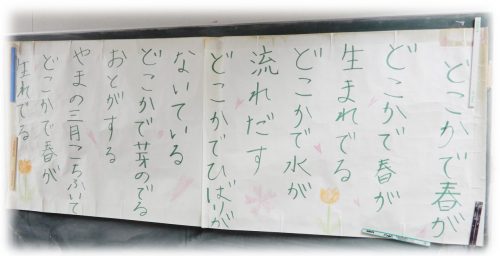 どこかで春が
どこかで春が
生まれでる
どこかで水が
流れだす
どこかでひばりが
ないている
どこかで芽のでる
おとがする
やまの三月こちふいて
どこかで春が
生れでる